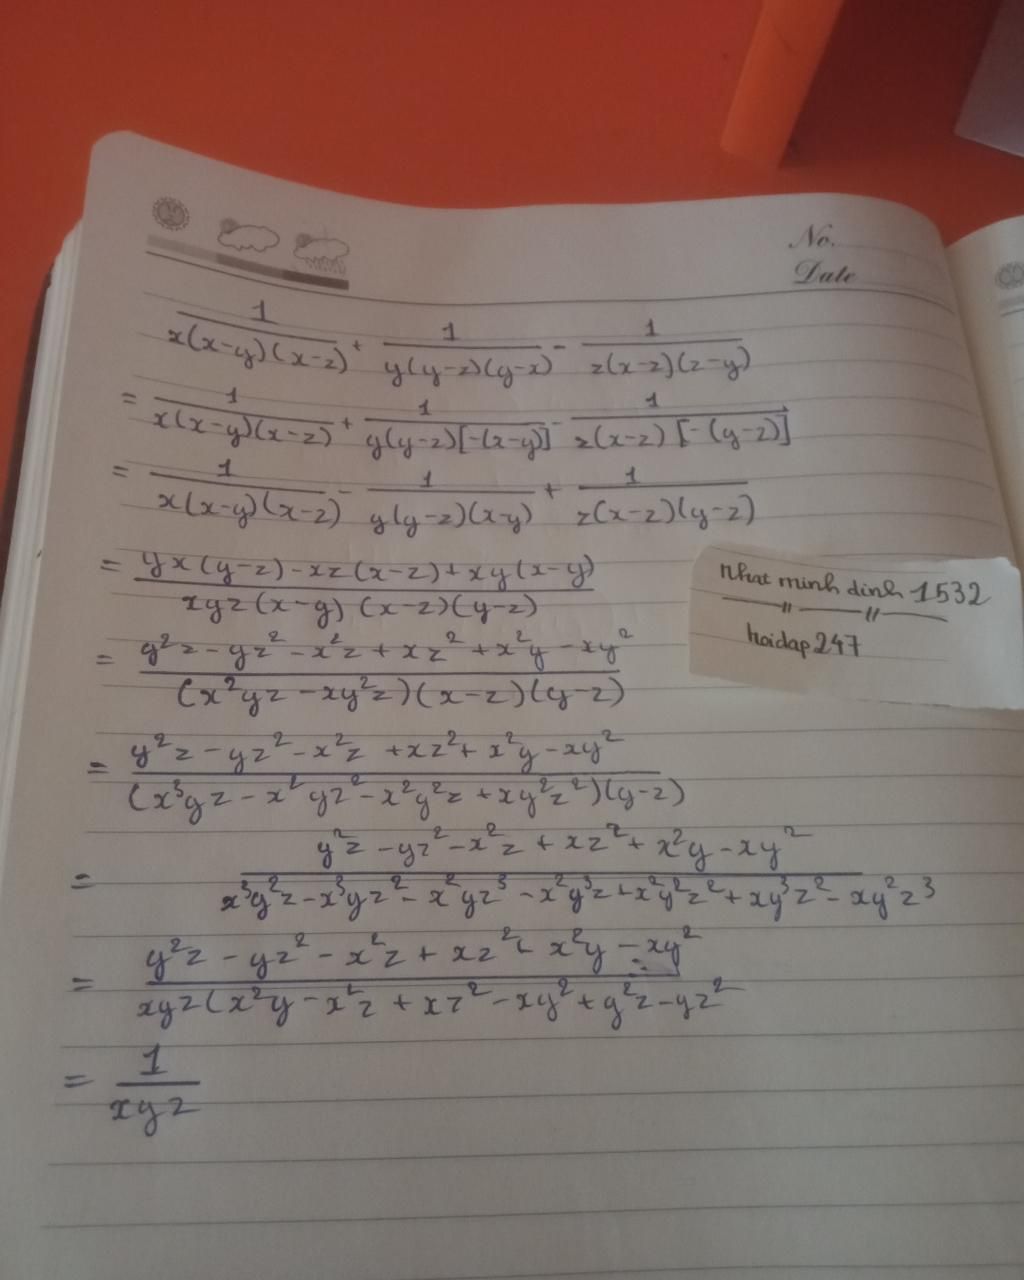 No.
Date
1/(x(x-y)(x-z)) + 1/(y(y-z)(y-x)) - 1/(z(x-z)(z-y))
= 1/(x(x-y)(x-z)) + 1/(y(y-z)[-(x-y)]) - 1/(z(x-z)[-(y-z)])
= 1/(x(x-y)(x-z)) - 1/(y(y-z)(x-y)) + 1/(z(x-z)(y-z))
= (yx(y-z) - xz(x-z) + xy(x-y))/(xyz(x-y)(x-z)(y-z))
Nhat minh dinh 1532
hoidap247
= (y²z - yz² - x²z + xz² + x²y - xy²)/((x²yz - xy²z)(x-z)(y-z))
= (y²z - yz² - x²z + xz² + x²y - xy²)/((x³yz - x²yz² - x²y²z + xy²z²)(y-z))
= (y²z - yz² - x²z + xz² + x²y - xy²)/(x³y²z - x³yz² - x²yz³ - x²y³z + x²y²z² + xy³z² - xy²z³)
= (y²z - yz² - x²z + xz² + x²y - xy²)/(xyz(x²y - x²z + xz² - xy² + y²z - yz²
= 1/(xyz)